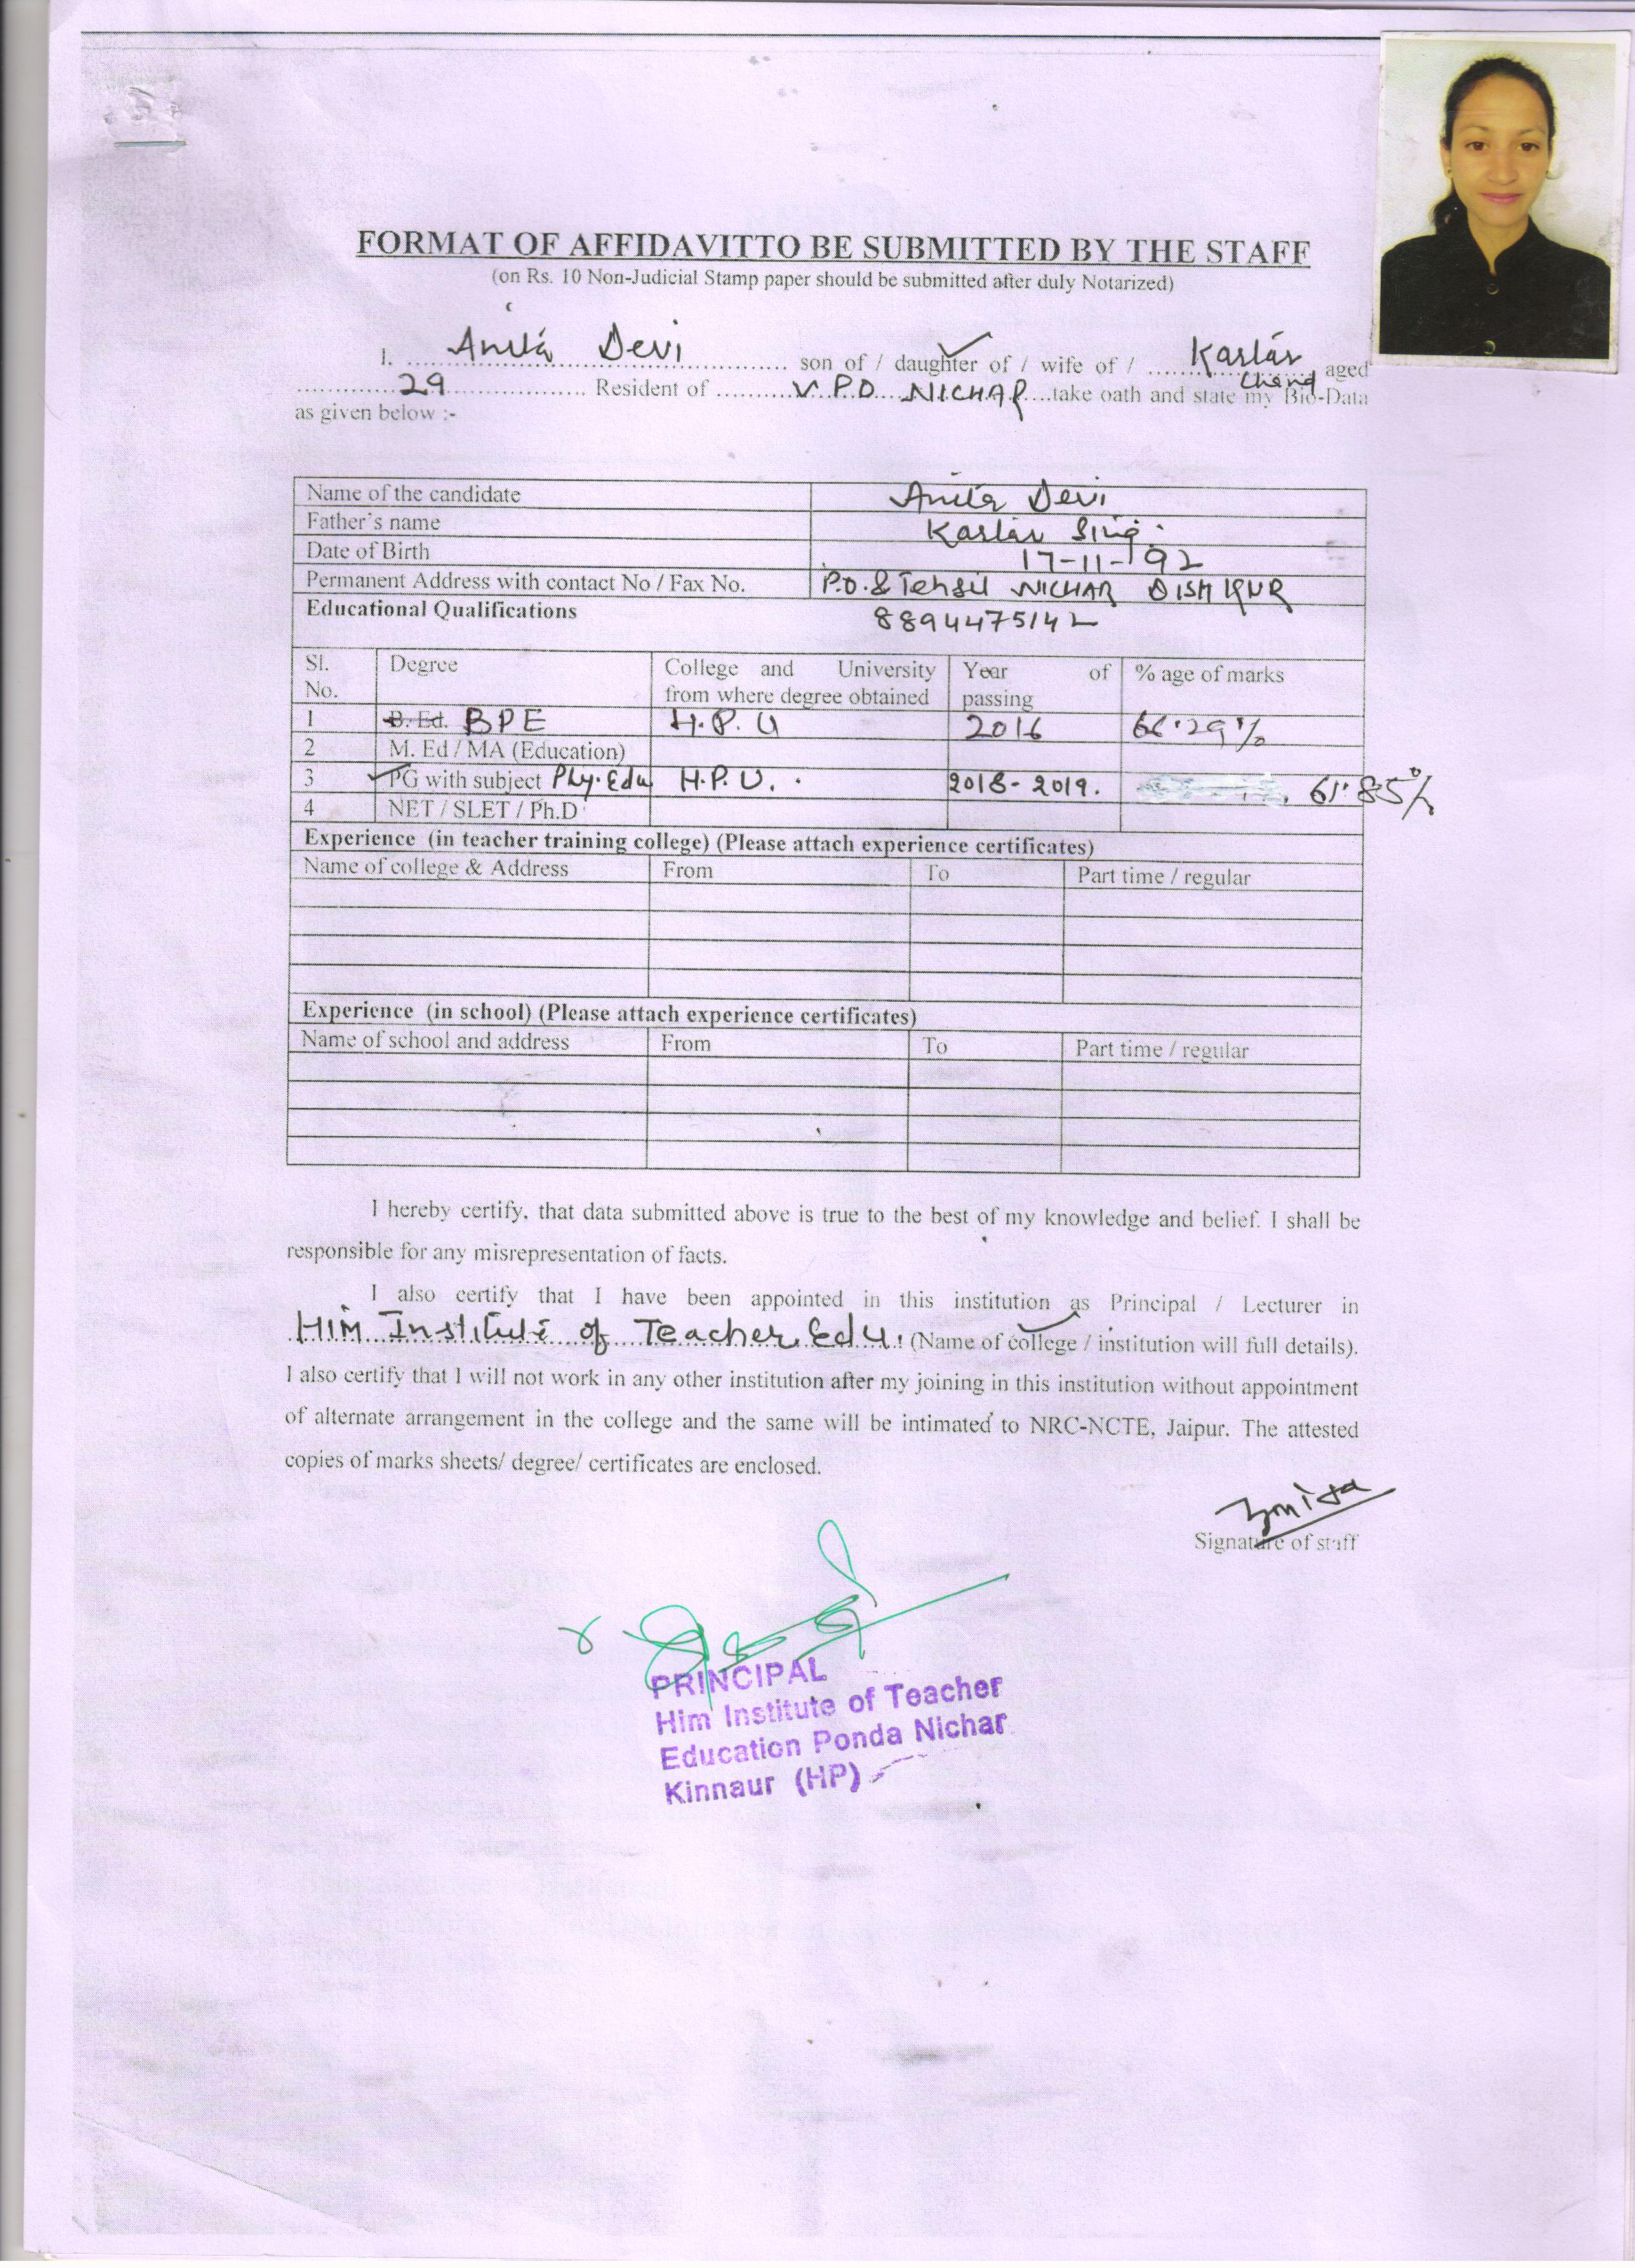 FORMAT OF AFFIDAVITTO BE SUBMITTED BY THE STAFF
(on Rs. 10 Non-Judicial Stamp paper should be submitted after duly Notarized)
I. Anita Devi son of / daughter of / wife of / Kartar Chand aged
29 Resident of V.P.O. NICHAR take oath and state my Bio-Data
as given below :-
Name of the candidate Anita Devi
Father's name Kartar Sing
Date of Birth 17-11-92
Permanent Address with contact No / Fax No. P.O. & Tehsil NICHAR Distt KNR
Educational Qualifications 8894475142
Sl. No. Degree College and University from where degree obtained Year of passing % age of marks
1 B. Ed. BPE H.P.U 2016 66.29%
2 M. Ed / MA (Education)
3 PG with subject Phy. Edu H.P.U. 2018-2019. 61.85%
4 NET / SLET / Ph.D
Experience (in teacher training college) (Please attach experience certificates)
Name of college & Address From To Part time / regular
Experience (in school) (Please attach experience certificates)
Name of school and address From To Part time / regular
I hereby certify, that data submitted above is true to the best of my knowledge and belief. I shall be
responsible for any misrepresentation of facts.
I also certify that I have been appointed in this institution as Principal / Lecturer in
Him Institute of Teacher Edu. (Name of college / institution will full details).
I also certify that I will not work in any other institution after my joining in this institution without appointment
of alternate arrangement in the college and the same will be intimated to NRC-NCTE, Jaipur. The attested
copies of marks sheets/ degree/ certificates are enclosed.
Anita
Signature of staff
PRINCIPAL
Him Institute of Teacher
Education Ponda Nichar
Kinnaur (HP)